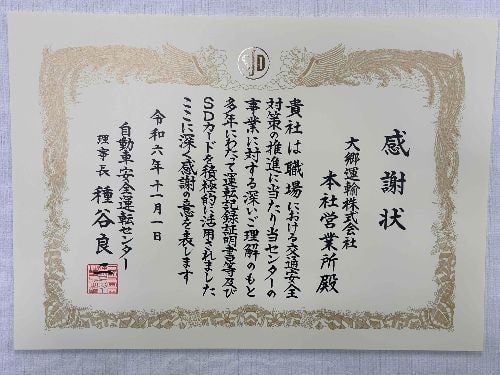 感謝状
大郷運輸株式会社
本社営業所殿
貴社は職場における交通安全
対策の推進に当たり当センターの
事業に対する深いご理解のもと
多年にわたって運転記録証明書等及び
SDカードを積極的に活用されました
ここに深く感謝の意を表します
令和六年十一月一日
自動車安全運転センター
理事長 種谷良
SD